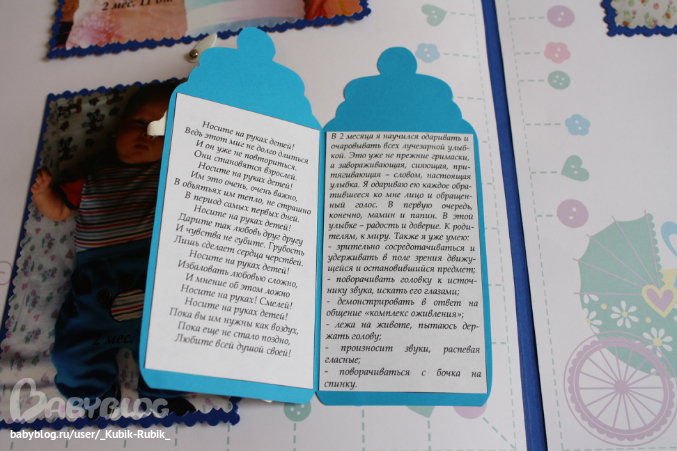 2 мес. 11 дн.
Носите на руках детей!
Ведь этот миг не долго длиться
И он уже не повториться.
Они становятся взрослей.
Носите на руках детей!
Им это очень, очень важно,
В объятьях им тепло, не страшно
В период самых первых дней.
Носите на руках детей!
Дарите так любовь друг другу
И чувства не губите. Грубость
Лишь сделает сердца черствей.
Носите на руках детей!
Избаловать любовью сложно,
И мнение об этом ложно
Носите на руках! Смелей!
Носите на руках детей!
Пока вы им нужны как воздух,
Пока еще не стало поздно,
Любите всей душой своей!
В 2 месяца я научился одаривать и
очаровывать всех лучезарной улыб-
кой. Это уже не прежние гримаски,
а завораживающая, сияющая, при-
тягивающая – словом, настоящая
улыбка. Я одариваю ею каждое обра-
тившееся ко мне лицо и обращен-
ный голос. В первую очередь,
конечно, мамин и папин. В этой
улыбке – радость и доверие. К роди-
телям, к миру. Также я уже умею:
- зрительно сосредотачиваться и
удерживать в поле зрения движу-
щейся и остановившийся предмет;
- поворачивать головку к источ-
нику звука, искать его глазами;
- демонстрировать в ответ на
общение «комплекс оживления»;
- лежа на животе, пытаюсь дер-
жать голову;
- произносит звуки, распевая
гласные;
- поворачиваться с бочка на
спинку.
2 мес.
BABYBLOG
babyblog.ru/user/_Kubik-Rubik_